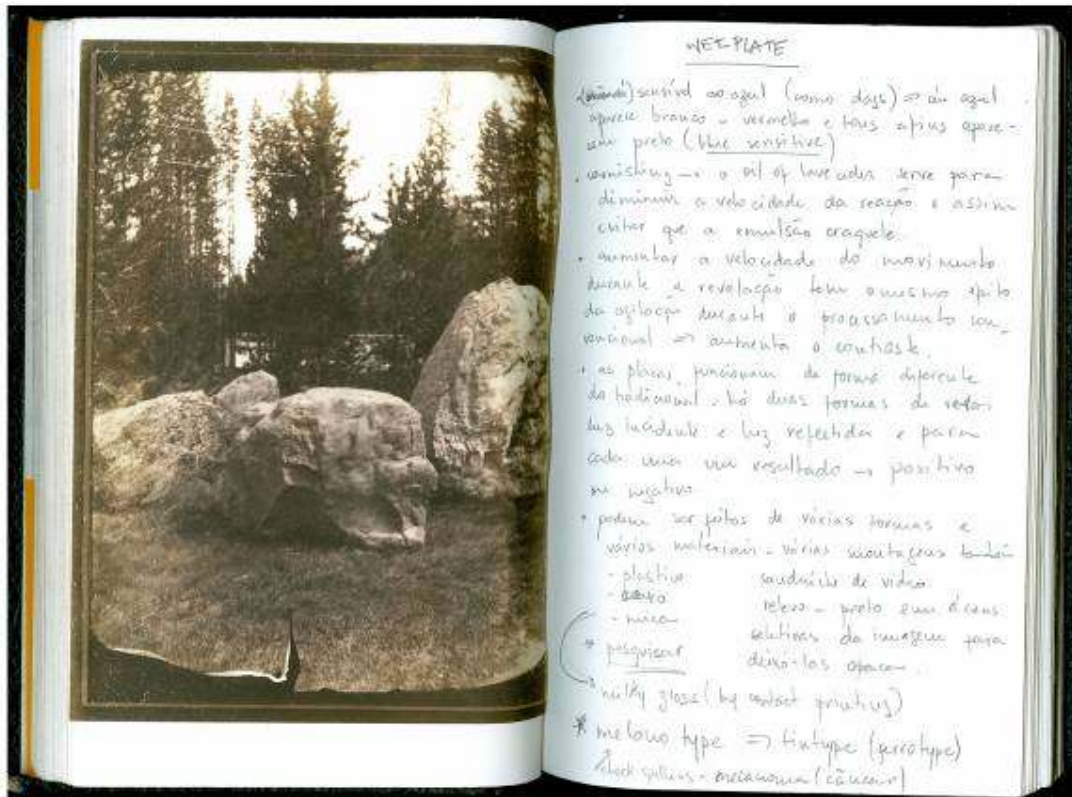 WET-PLATE
sensível ao azul (como dags) => céu azul
aparece branco - vermelho e tons afins apare-
cem preto (blue sensitive)
. varnishing → o oil of lavender serve para
diminuir a velocidade da reação e assim
evitar que a emulsão craquele.
• aumentar a velocidade do movimento
durante a revelação tem o mesmo efeito
da agitação durante o processamento con-
vencional => aumenta o contraste.
• as placas funcionam de forma diferente
do tradicional - há duas formas de
luz incidente e luz refletida e para
cada uma um resultado → positivo
ou negativo
• podem ser feitas de várias formas e
vários materiais - várias montagens também
- plastico sanduíche de vidro
- relevo - preto em áreas
- mica seletivas da imagem para
* pesquisar deixá-las opacas.
milky glass (by contact printing)
* melano type => tintype (ferrotype)
check spelling - melanoma (câncer)